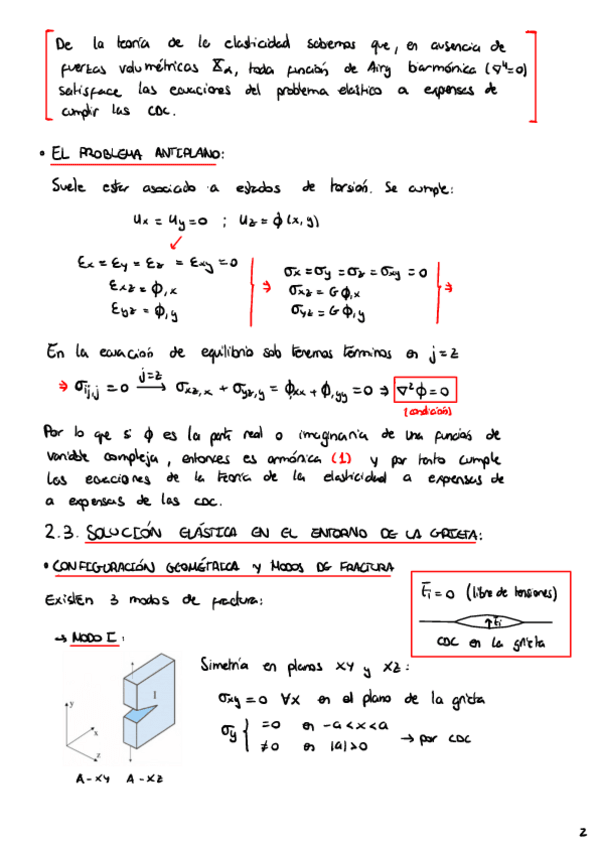 De la teoría de la elasticidad sabemos que, en ausencia de
fuerzas volumétricas X̄α, toda función de Airy biarmónica (∇⁴=0)
satisface las ecuaciones del problema elástico a expensas de
cumplir las CDC.
• EL PROBLEMA ANTIPLANO:
Suele estar asociado a estados de torsión. Se cumple:
ux = uy = 0 ; uz = ϕ(x,y)
εx = εy = εz = εxy = 0
εxz = ϕ,x
εyz = ϕ,y
⇒
σx = σy = σz = σxy = 0
σxz = Gϕ,x
σyz = Gϕ,y
⇒
En la ecuación de equilibrio solo tenemos términos en j = z
⇒ σij,j = 0 j=z → σxz,x + σyz,y = ϕ,xx + ϕ,yy = 0 ⇒ ∇²ϕ = 0
(condición)
Por lo que si ϕ es la parte real o imaginaria de una función de
variable compleja, entonces es armónica (1) y por tanto cumple
las ecuaciones de la teoría de la elasticidad a expensas de
a expensas de las CDC.
2.3. SOLUCIÓN ELÁSTICA EN EL ENTORNO DE LA GRIETA:
• CONFIGURACIÓN GEOMÉTRICA y MODOS DE FRACTURA
Existen 3 modos de fractura:
t̄i = 0 (libre de tensiones)
↑t̄i
CDC en la grieta
→ MODO I:
Simetría en planos XY y XZ:
σxy = 0 ∀x en el plano de la grieta
σy { = 0 en -a < x < a
≠ 0 en |a| > 0 → por CDC
I
y
x
z
A-XY A-XZ
2